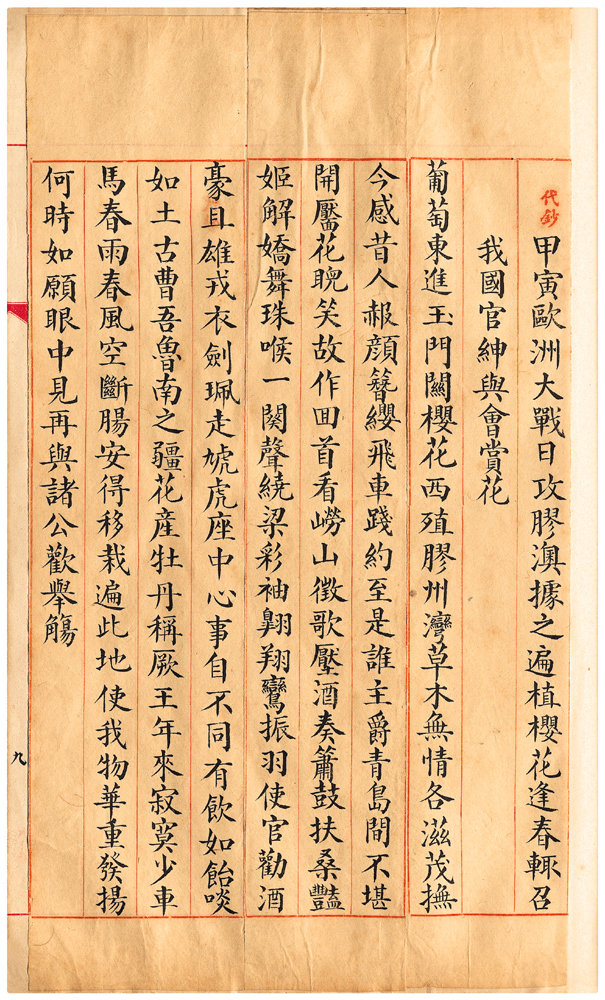 代鈔
甲寅歐洲大戰日攻膠澳據之遍植櫻花逢春輒召
我國官紳與會賞花
葡萄東進玉門關櫻花西殖膠州灣草木無情各滋茂撫
今感昔人赧顏簪纓飛車踐約至是誰主爵青島間不堪
開靨花睨笑故作回首看嶗山徵歌壓酒奏簫鼓扶桑豔
姬解嬌舞珠喉一闋聲繞梁彩袖翱翔鸞振羽使官勸酒
豪且雄戎衣劍珮走虓虎座中心事自不同有飲如飴啖
如土古曹吾魯南之疆花產牡丹稱厥王年來寂寞少車
馬春雨春風空斷腸安得移栽遍此地使我物華重發揚
何時如願眼中見再與諸公歡舉觴
九